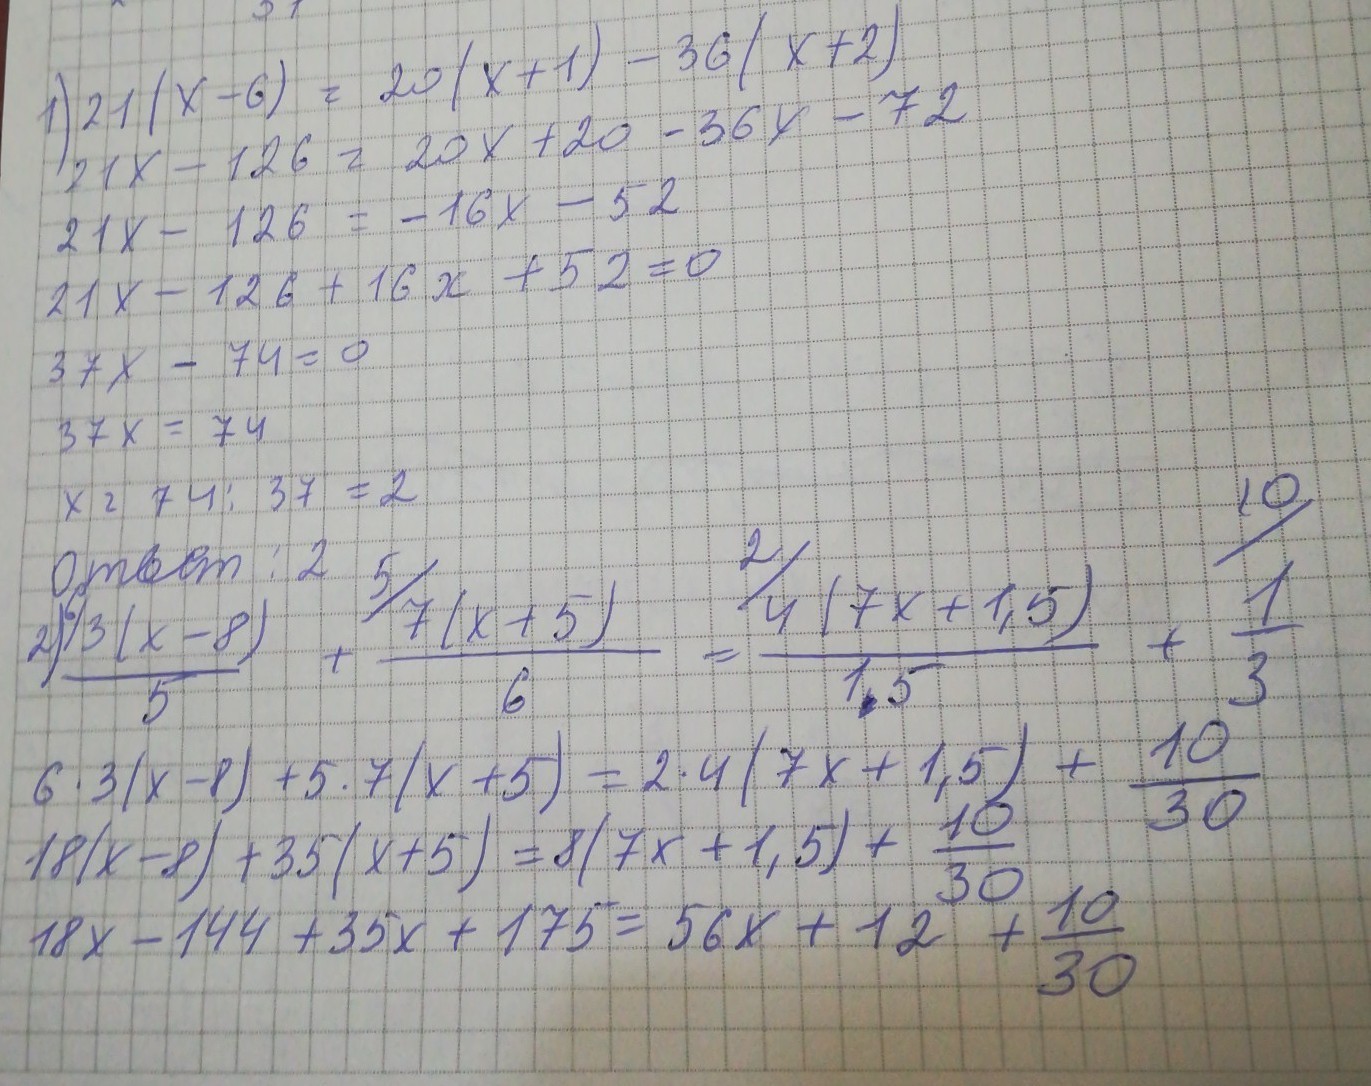 1) 21(x-6) = 20(x+1) - 36(x+2)
21x - 126 = 20x + 20 - 36x - 72
21x - 126 = -16x - 52
21x - 126 + 16x + 52 = 0
37x - 74 = 0
37x = 74
x = 74 : 37 = 2
Ответ : 2
2) 6/ 3(x-8)/5 + 5/ 7(x+5)/6 = 2/ 4(7x+1,5)/1,5 + 10/ 1/3
6·3(x-8) + 5·7(x+5) = 2·4(7x+1,5) + 10/30
18(x-8) + 35(x+5) = 8(7x+1,5) + 10/30
18x - 144 + 35x + 175 = 56x + 12 + 10/30